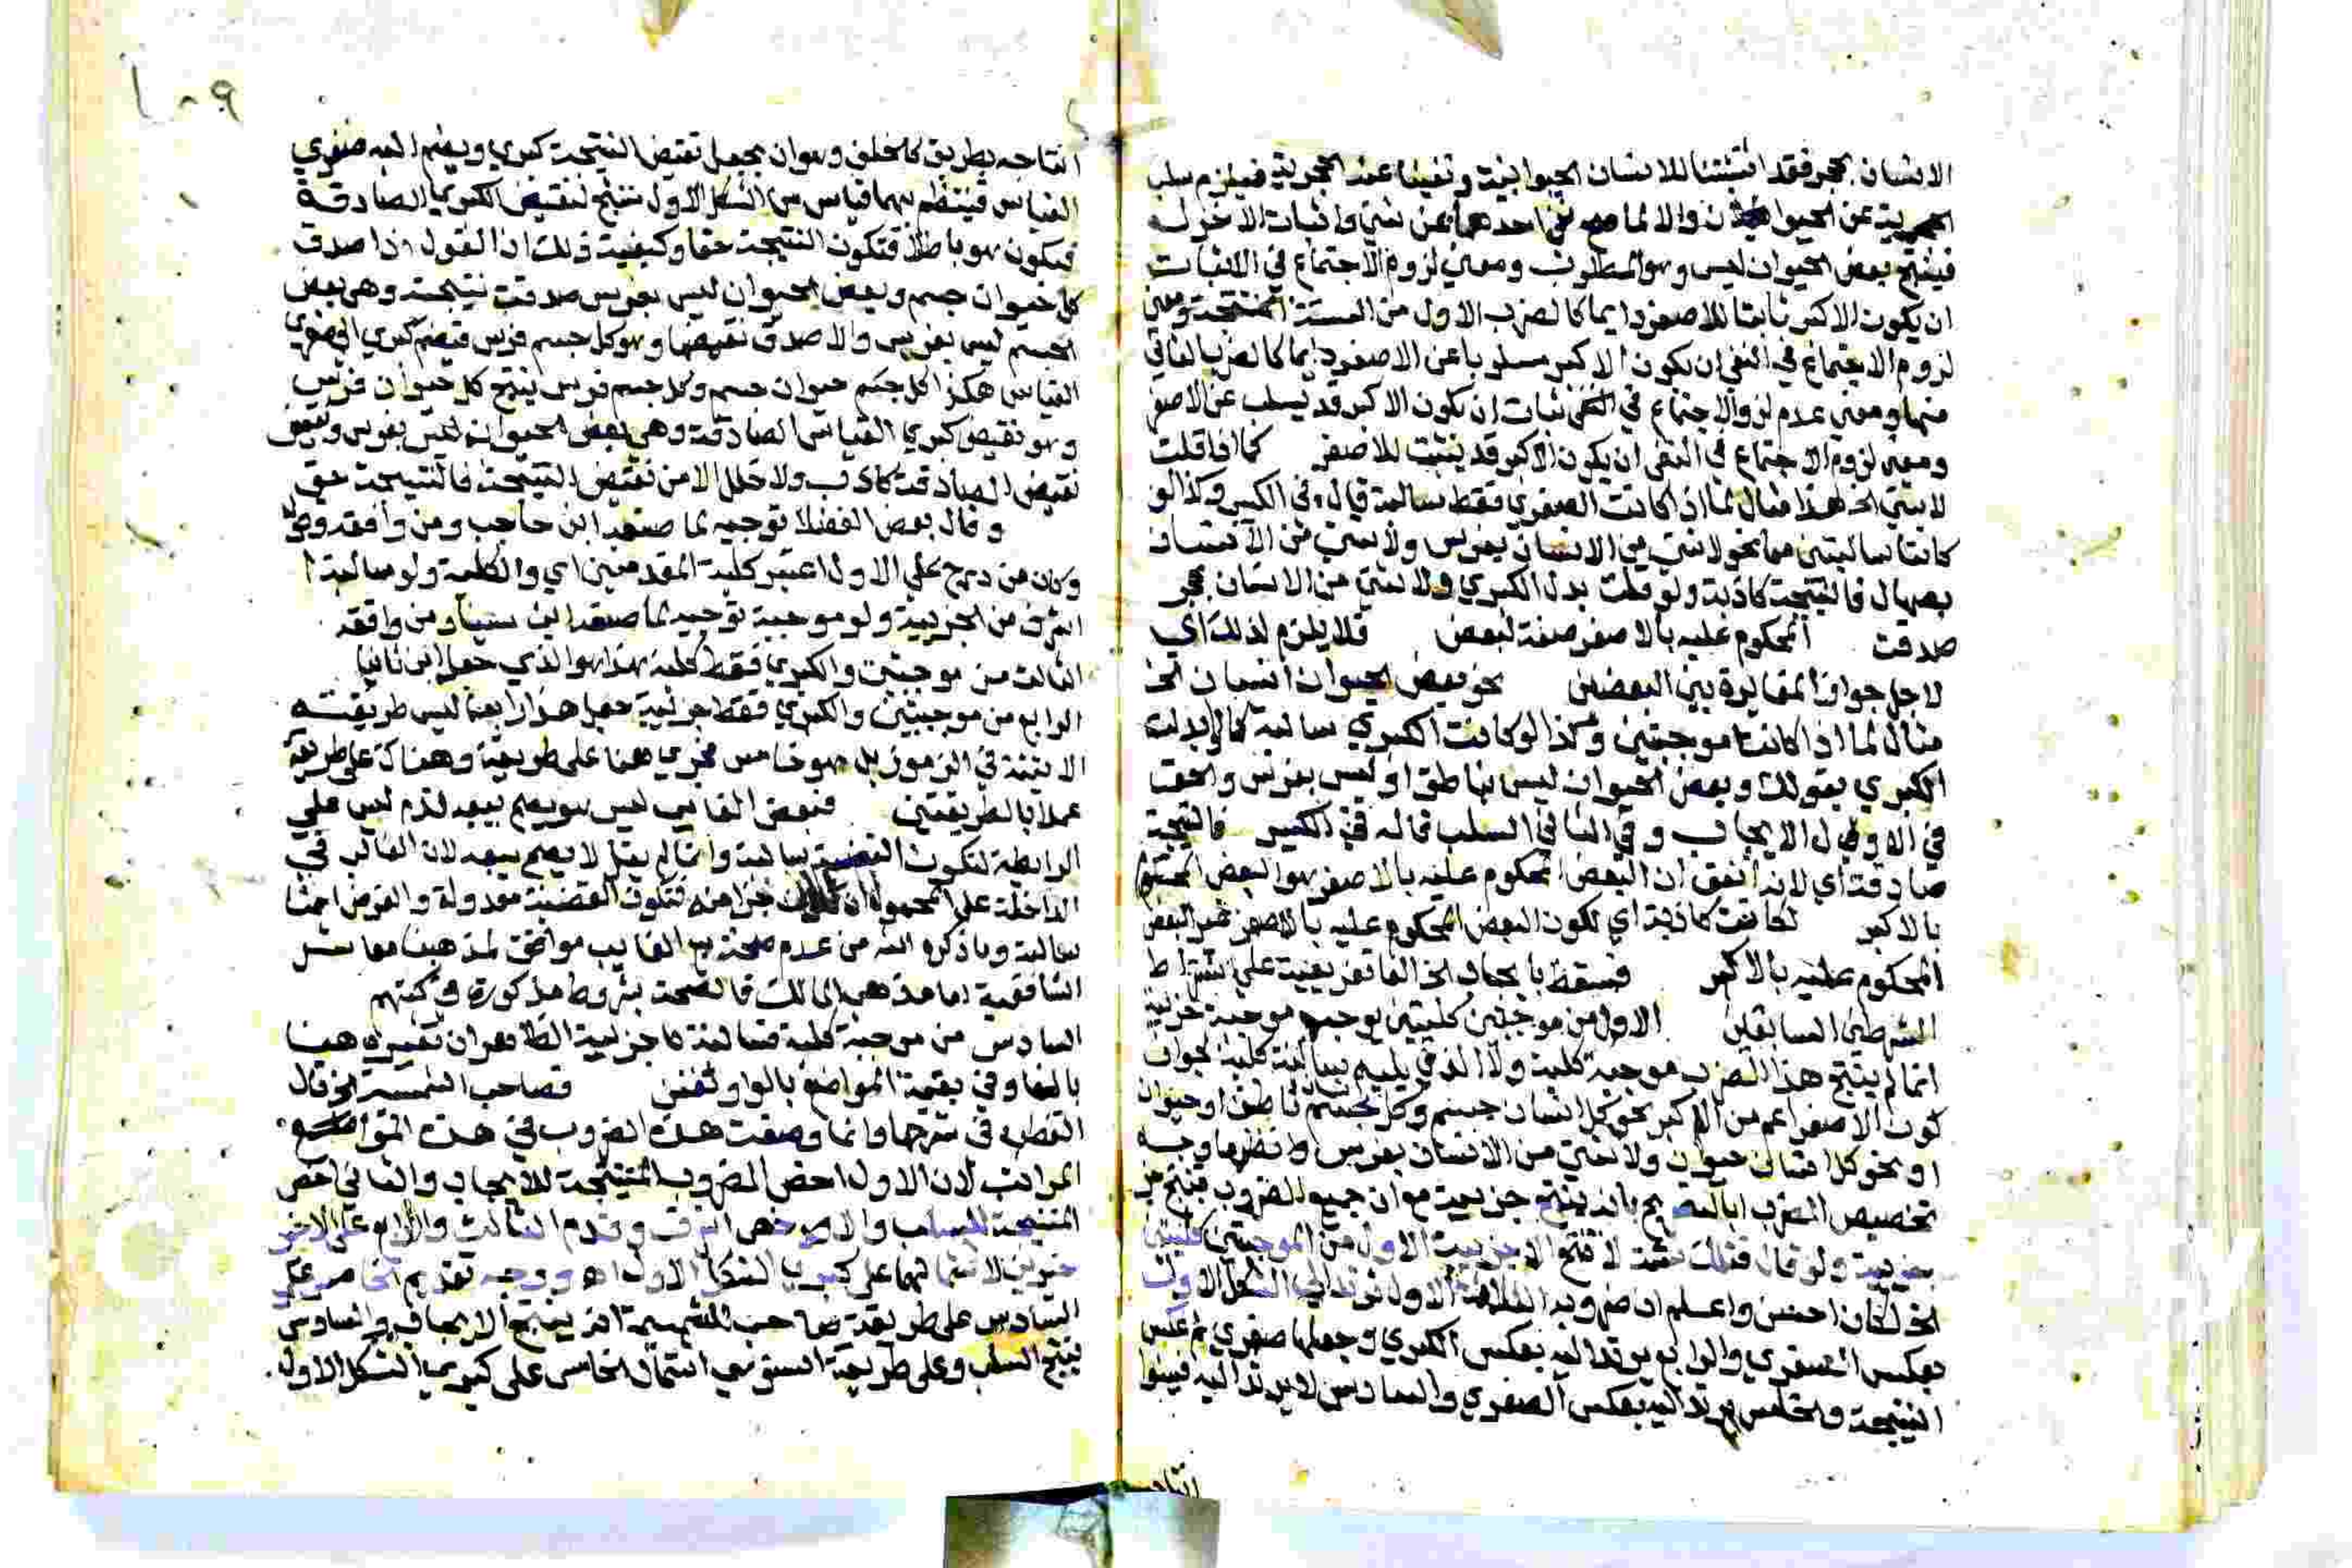 الانسان بحجر فقد اثبتنا للانسان الحيوانية ونفينا عنه الحجرية فيلزم سلب
الحجرية عن الحيوان والا لما صح نفي احدهما عن شيء واثبات الاخر له
فينتج بعض الحيوان ليس وهو المطلوب ومعنى لزوم الاجتماع في الاثبات
ان يكون الاكبر ثابتا للاصغر دايما كالضرب الاول من الستة المنتجة ومعنى
لزوم الاجتماع في النفي ان يكون الاكبر مسلوبا عن الاصغر دايما كالضرب الثاني
منها ومعنى عدم لزوم الاجتماع في الاثبات ان يكون الاكبر قد يسلب عن الاصغر
ومعنى لزوم الاجتماع في النفي ان يكون الاكبر قد يثبت للاصغر كما اذا قلت
لا شيء الخ هذا مثال لما اذا كانت الصغرى فقط سالبة قال في الكبير وكذا لو
كانتا سالبتين معا نحو لا شيء من الانسان بفرس ولا شيء من الانسان
بصهال فالنتيجة كاذبة ولو قلت بدل الكبرى ولا شيء من الانسان بحجر
صدقت المحكوم عليه بالاصغر صفة لبعض فلا يلزم لذلك اي
لاجل جواز المغايرة بين البعضين نحو بعض الحيوان انسان الخ
مثال لما اذا كانتا موجبتين وكذا لو كانت الكبرى سالبة كما لو بدلت
الكبرى بقولك وبعض الحيوان ليس بناطق او ليس بفرس والحق
في الاول الايجاب وفي الثاني السلب قاله في الكبير فالنتيجة
صادقة اي لانه اتفق ان البعض المحكوم عليه بالاصغر هو البعض المحكوم
بالاكبر لكانت كاذبة اي لكون البعض المحكوم عليه بالاصغر غير البعض
المحكوم عليه بالاكبر فسقط بايجاب الخ الفا تفريعية على اشتراط
الشرطين السابقين الاول من موجبتين كليتين يوجب موجبة جزئية
انما لم ينتج هذا الضرب موجبة كلية ولا الذي يليه سالبة كلية لجواز
كون الاصغر اعم من الاكبر نحو كل انسان جسم وكل انسان ناطق او حيوان
او نحو كل انسان حيوان ولا شيء من الانسان بفرس وانظر ما وجه
تخصيص الضرب بالتصريح بانه ينتج جزئية مع ان جميع الضروب تنتج
جزئية ولو قال فتلك ستة لا تنتج الا جزئية الاول من الموجبتين كليتين
الخ لكان احسن واعلم ان ضروبه الثلاثة الاول ترتد الى الشكل الاول
بعكس الصغرى والرابع يرتد اليه بعكس الكبرى وجعلها صغرى ثم عكس
النتيجة والخامس يرتد اليه بعكس الصغرى والسادس لا يرتد اليه فبينوا
انتاجه
١٠٩
انتاجه بطريق كالخلف وهو ان يجعل نقيض النتيجة كبرى ويضم اليه صغرى
القياس فينتظم بهما قياس من الشكل الاول منتج لنقيض الكبرى الصادقة
فيكون هو باطلا فتكون النتيجة حقا وكيفية ذلك ان القول اذا صدق
كل حيوان جسم وبعض الحيوان ليس بفرس صدقت نتيجته وهي بعض
الجسم ليس بفرس والا صدق نقيضها وهو كل جسم فرس فيضم كبرى الى صغرى
القياس هكذا كل حيوان جسم وكل جسم فرس ينتج كل حيوان فرس
وهو نقيض كبرى القياس الصادقة وهي بعض الحيوان ليس بفرس ونقيض
نقيض الصادقة كاذب ولا خلل الا من نقيض النتيجة فالنتيجة حق
وقال بعض الفضلا توجيه لما صنعه ابن حاجب ومن وافقه
وكان من درج على الاول اعتبر كلية المقدمتين اي والكلية ولو سالبة
اشرف من الجزئية ولو موجبة توجيه لما صنعه ابن سينا ومن وافقه
الثالث من موجبتين والكبرى فقط كلية هذا هو الذي جعل ثانيا
الرابع من موجبتين والكبرى فقط جزئية جعل هذا رابعا ليس طريقته
الاتية في الرموز بل هو خامس فجرى هنا على طريقة وهناك على طريقة
عملا بالطريقتين فبعض الغايب ليس هو يصح بيعه لزم ليس على
الرابطة لتكون القضية سالبة وانما لم يقل لا يصح بيعه لان الغالب في
الداخلة على المحمول ان جزا منه فتكون القضية معدولة والغرض انها
سالبة وما ذكره الشه من عدم صحة بيع الغايب موافق لمذهبنا معاشر
الشافعية اما مذهب مالك فالصحة بشروط مذكورة في كتبهم
السادس من موجبة كلية فسالبة جزئية الظاهر ان تعبيره هنا
بالفا وفي بقية المواضع بالواو تفنن فصاحب الشمسية الخ قال
القطب في شرحها وانما وضعت هذه الضروب في هذه
المراتب لان الاول اخص الضروب المنتجة للايجاب والثاني اخص
المنتجة للسلب والاخص اشرف وقدم الثالث والرابع على الاخيرين
لاشتمالهما على كبرى الشكل الاول اه ووجه تقديم الخامس على
السادس على طريقة صاحب الشمسية انه ينتج الايجاب والسادس
ينتج السلب وعلى طريقة السنوسي اشتمال الخامس على كبرى الشكل الاول